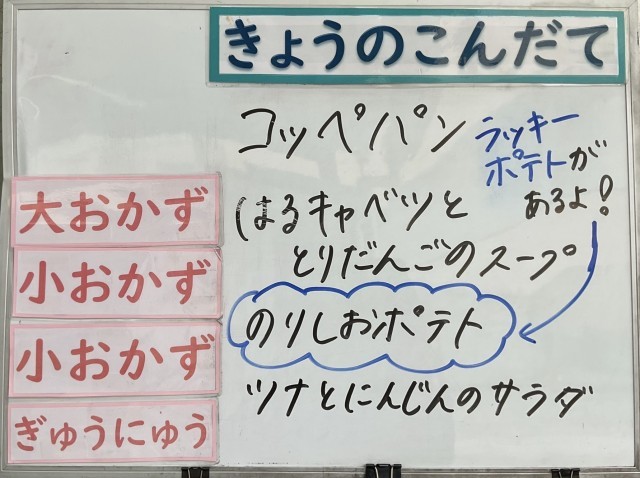 きょうのこんだて
コッペパン
ラッキー
ポテトが
あるよ!
大おかず
はるキャベツと
とりだんごのスープ
小おかず
のりしおポテト
小おかず
ツナとにんじんのサラダ
ぎゅうにゅう